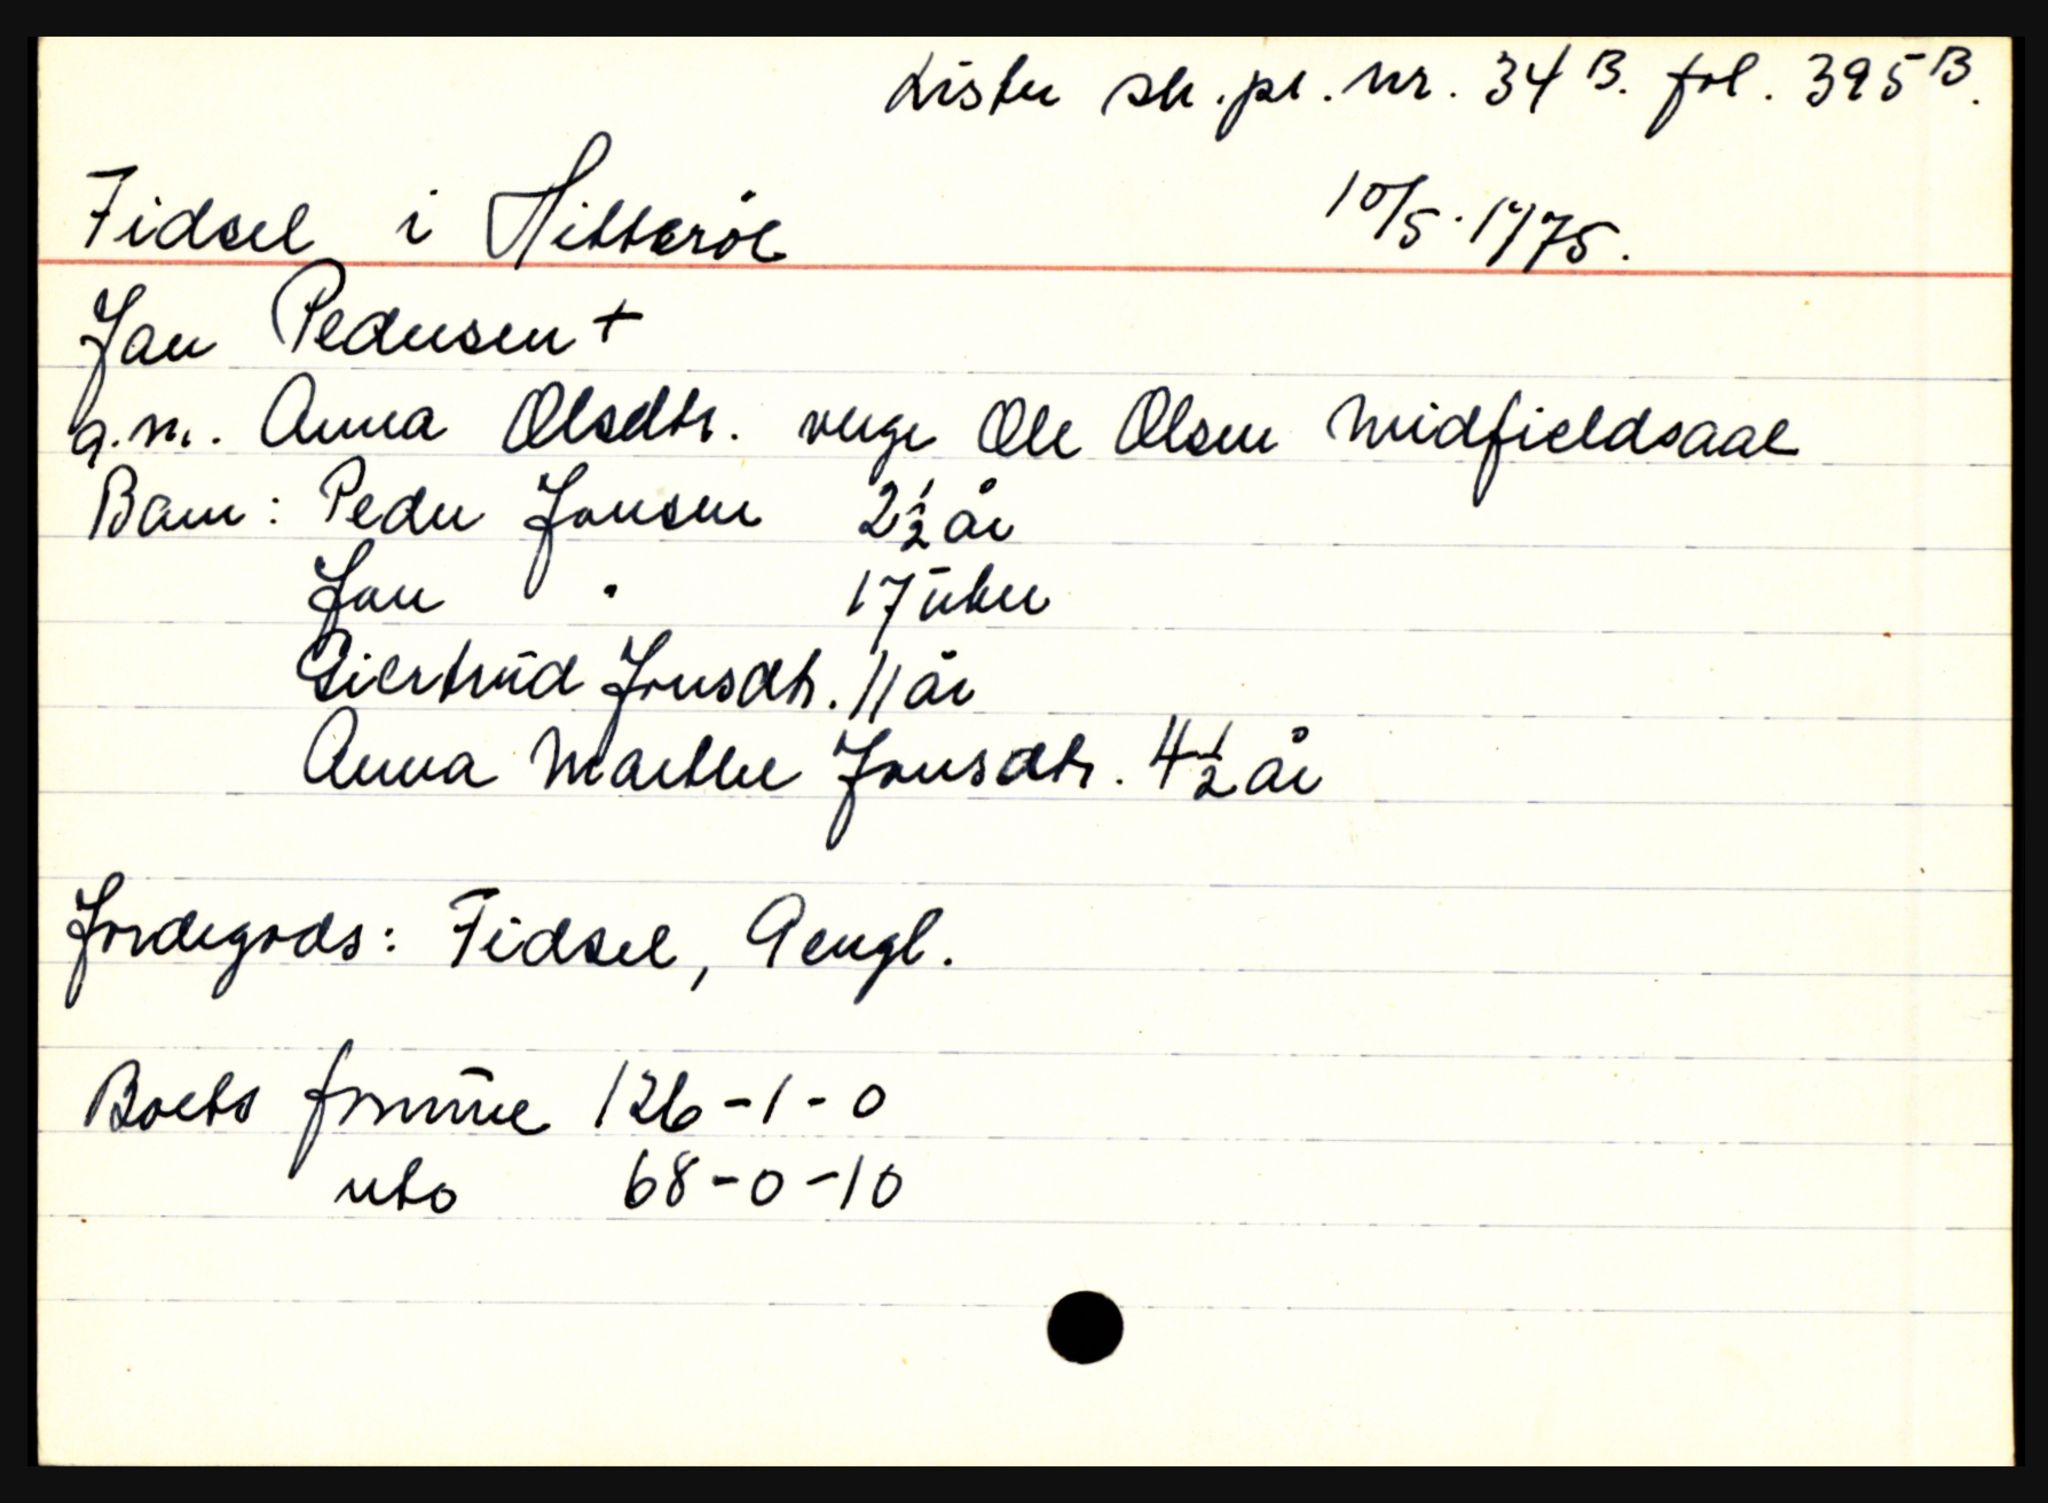 Lister sk.pr. nr. 34 B. fol. 395 B.
Fidsel i Hitterøe 10/5·1775.
Jan Pedersen +
g.m. Anna Olsdtr. verge Ole Olsen Midfieldsaae
Barn: Peder Jansen 2 1/2 år
Jan " 17 uker
Giertrud Jansdtr. 11 år
Anna Marthe Jansdtr. 4 1/2 år
Jordegods: Fidsel, 9 engl.
Boets formue 126-1-0
nto 68-0-10